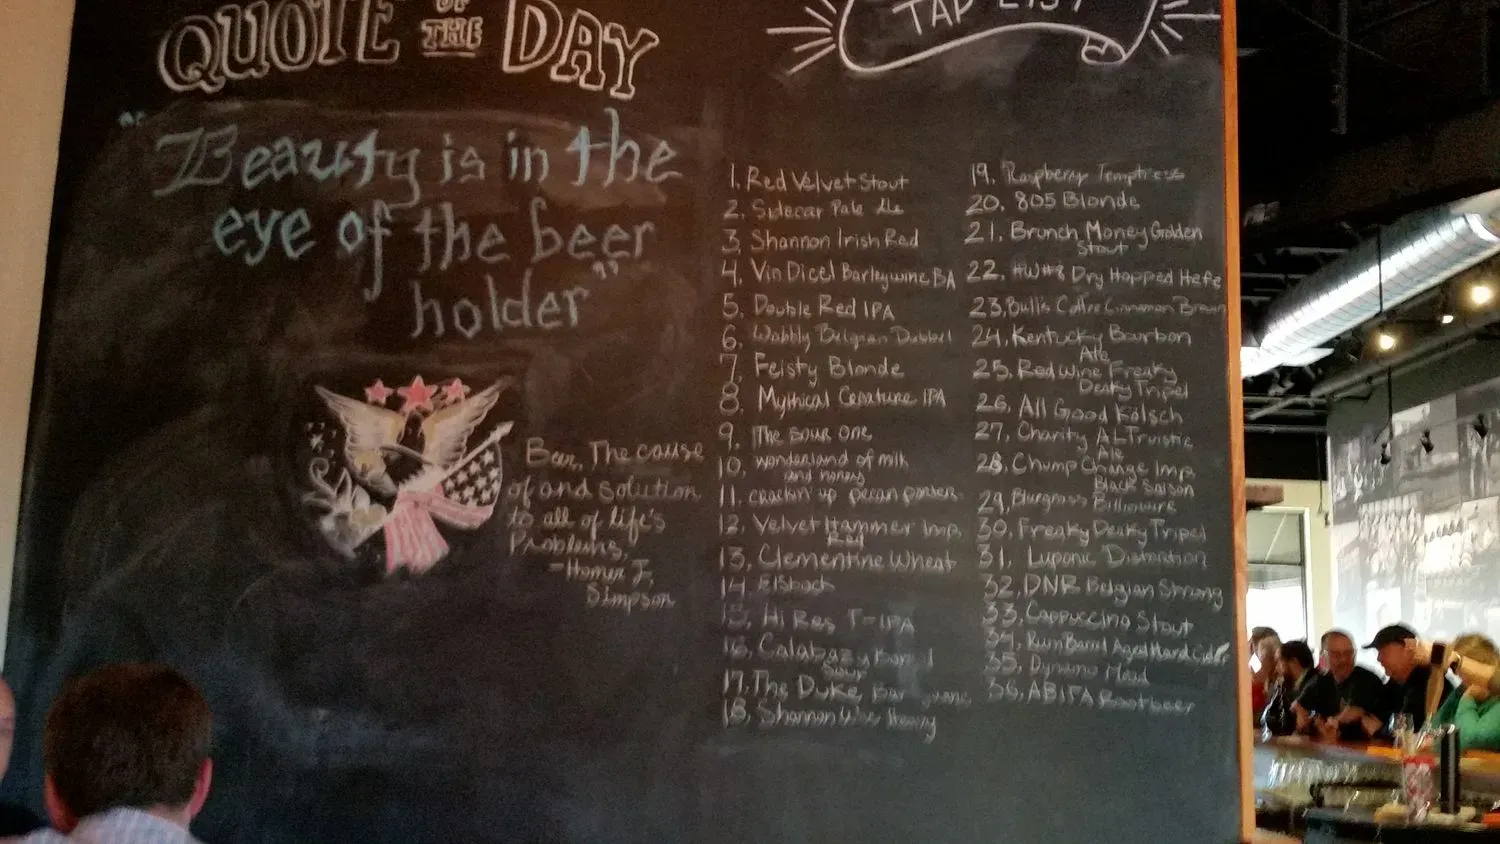 QUOTE OF THE DAY
"Beauty is in the
eye of the beer
holder"
Beer, The cause
of and solution
to all of life's
Problems.
-Homer J.
Simpson
TAP LIST
1. Red Velvet Stout
2. Sidecar Pale Ale
3. Shannon Irish Red
4. Vin Dicel Barleywine BA
5. Double Red IPA
6. Wobbly Belgian Dubbel
7. Feisty Blonde
8. Mythical Creature IPA
9. The Sour One
10. wonderland of milk
and honey
11. crackin' up pecan porter
12. Velvet Hammer Imp.
Red
13. Clementine Wheat
14. Elsbock
15. Hi Res T-IPA
16. Calabaza Boreal
Sour
17. The Duke Bar
18. Shannon
19. Raspberry Temptress
20. 805 Blonde
21. Brunch Money Golden
Stout
22. #W#8 Dry Hopped Hefe
23. Bull's Coffee Cinnamon Brown
24. Kentucky Bourbon
Ale
25. Red Wine Freaky
Deaky Tripel
26. All Good Kölsch
27. Charity ALTruistic
Ale
28. Chump Change Imp.
Black Saison
29. Bluegrass Billionaire
30. Freaky Deaky Tripel
31. Luponic Distortion
32. DNR Belgian Strong
33. Cappuccino Stout
34. Rum Barrel Aged Hard Cider
35. Dynamo Maid
36. ABITA Rootbeer